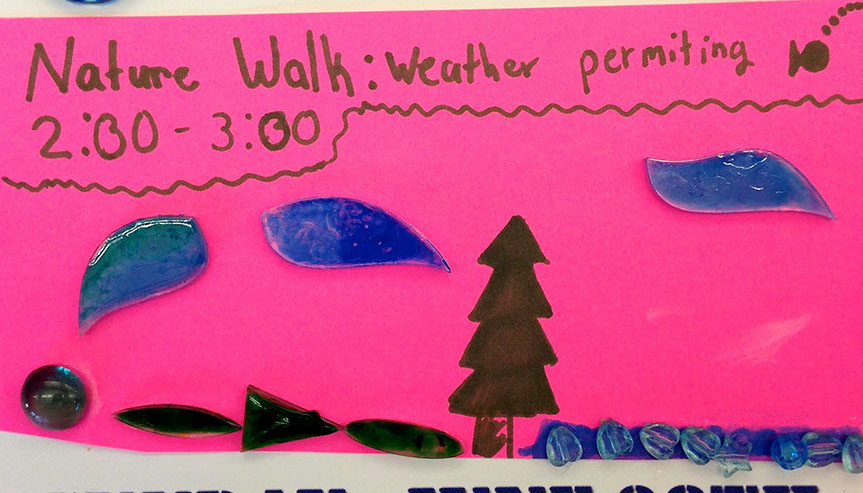 Nature Walk: Weather permiting
2:00 - 3:00